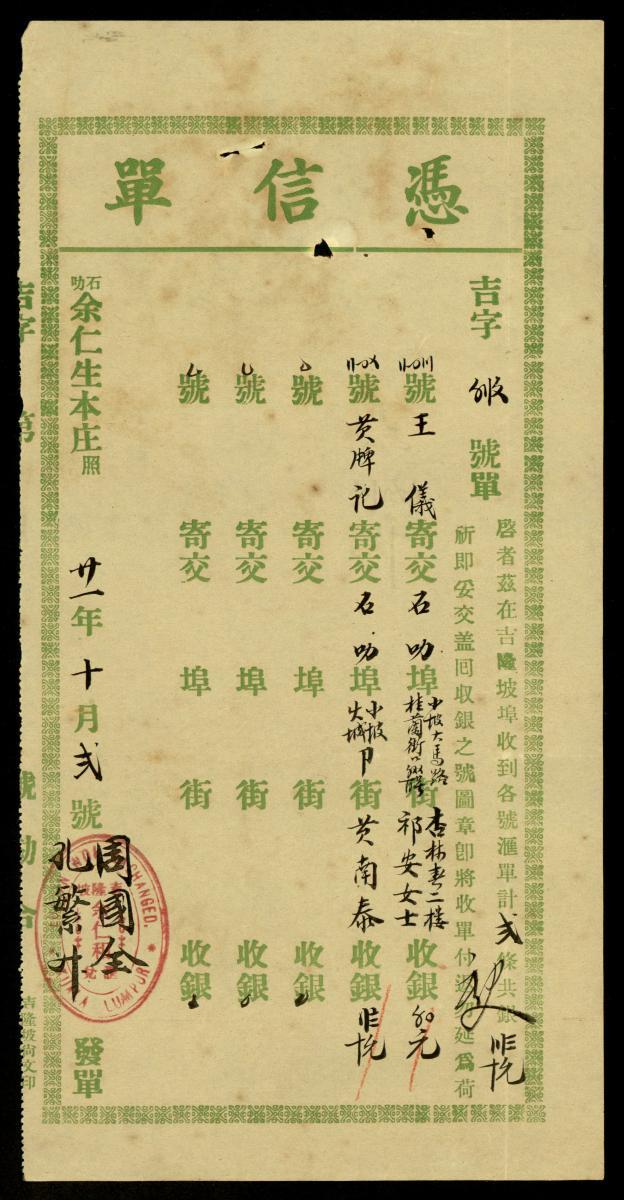 憑信單
吉字 號單
啓者茲在吉隆坡埠收到各號滙單計弍條共銀
祈即妥交盖囘收銀之號圖章即將收單付返勿延爲荷
號王儀寄交石叻埠小坡大馬路街杏林春二楼祁安女士收銀 元
號黄牌記寄交石叻埠小坡火城街黄南泰收銀
號 寄交 埠 街 收銀
號 寄交 埠 街 收銀
號 寄交 埠 街 收銀
石叻余仁生本庄照
廿一年十月弍號
周國全
孔繁升
發單
EXCHANGED.
KUALA LUMPUR
吉隆坡尚文印
吉字第 號勘合